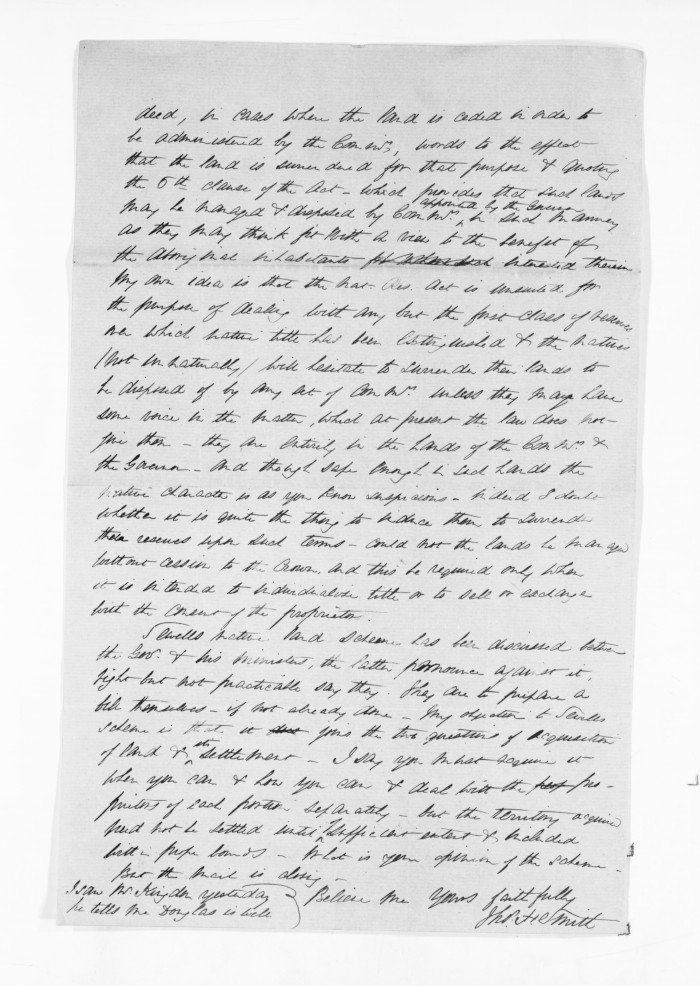 deed, in cases where the land is ceded in order to
be administered by the Comm<sup>rs</sup>, words to the effect
that the land is surrendered for that purpose & quoting
the 6th clause of the Act - which provides that such lands
appointed by the Governor
may be managed & disposed by Comm<sup>rs</sup> in such manner
as they may think fit with a view to the benefit of
the aboriginal inhabitants interested therein
My own idea is that the Nat. Res. Act is unsuited for
the purpose of dealing with any but the first class of reserves
over which native title has been extinguished & the natives
(not unnaturally) will hesitate to surrender their lands to
be disposed of by any act of Comm<sup>rs</sup> unless they may have
some voice in the matter, which at present the law does not
give them - they are entirely in the hands of the Comm<sup>rs</sup> &
the Governor - and though safe enough in such hands the
native character is as you know suspicious - indeed I doubt
whether it is quite the thing to induce them to surrender
their reserves upon such terms - could not the lands be managed
without cession to the Crown, and this be required only when
it is intended to individualise title or to sell or exchange
with the consent of the proprietors.
Sewells native land scheme has been discussed between
the Gov<sup>r</sup>. & his ministers, the latter pronounce against it,
right but not practicable say they. They are to prepare a
bill themselves - if not already done - My objection to Sewells
scheme is that it joins the two questions of acquisition
of land & its settlement - I say you must acquire it
when you can & how you can & deal with the pro-
prietors of each portion separately - but the territory acquired
need not be settled until sufficient extent & included
within proper bounds - What is your opinion of the scheme -
But the mail is closing -
Believe me Yours faithfully
Tho<sup>s</sup> H Smith
I saw Mr Kingdon yesterday
he tells me Douglas is well